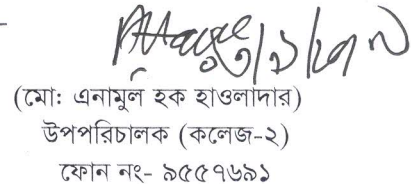 (মো: এনামুল হক হাওলাদার)
উপপরিচালক (কলেজ-২)
ফোন নং- ৯৫৫৭৬৯১